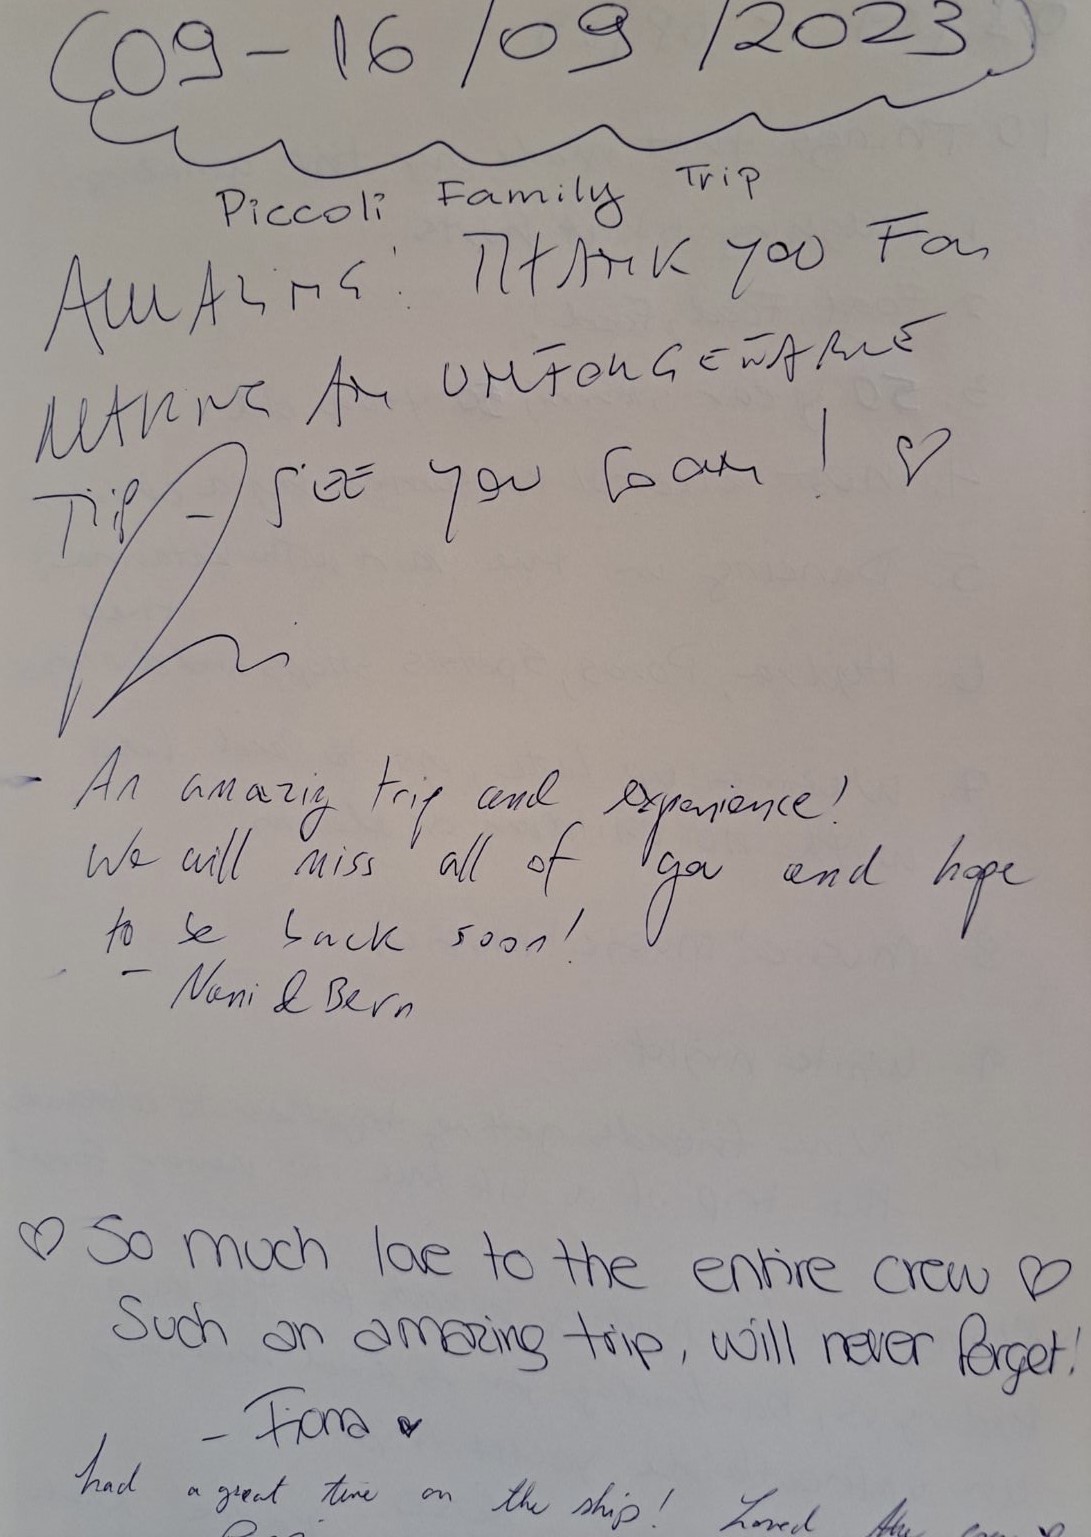 (09-16/09/2023)
Piccoli Family Trip
AMAZING! THANK YOU FOR
MAKING AN UNFORGETTABLE
TRIP - SEE YOU SOON! ♡
- An amazig trip and experience!
We will miss all of you and hope
to be back soon!
- Nani & Bern
♡ So much love to the entire crew ♡
Such an amazing trip, will never forget!
- Fiona ♥
had a great time on the ship! Loved